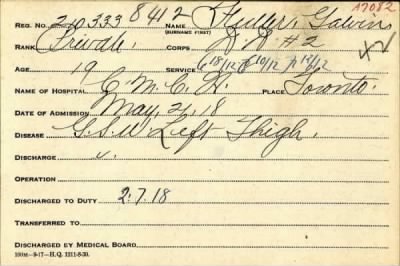 17082
REG. NO. 210333 8412 NAME Fuller, Galvin
(SURNAME FIRST)
RANK Private. CORPS D.D. #2
AGE 19 SERVICE 18/12 10/12 14/12
NAME OF HOSPITAL C.M.C.H. PLACE Toronto.
DATE OF ADMISSION May, 21, 8
DISEASE G.S.W. Left Thigh.
DISCHARGE
OPERATION
DISCHARGED TO DUTY 2.7.18
TRANSFERRED TO
DISCHARGED BY MEDICAL BOARD.
100M-9-17-H.Q. 1211-8-30.